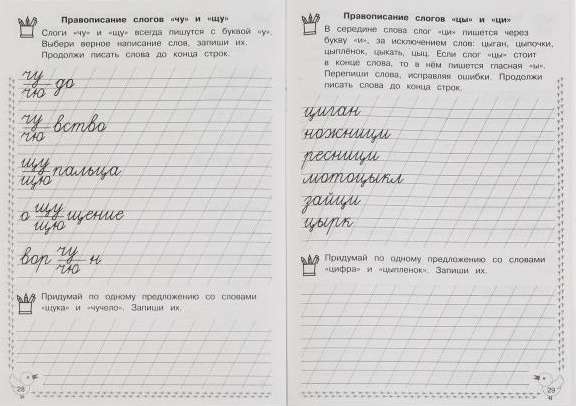 Правописание слогов «чу» и «щу»
Слоги «чу» и «щу» всегда пишутся с буквой «у».
Выбери верное написание слов, запиши их.
Продолжи писать слова до конца строк.
чу
чю до
чу
чю вство
щу
щю пальца
о щу
щю щение
вор чу
чю н
Придумай по одному предложению со словами
«щука» и «чучело». Запиши их.
28
Правописание слогов «цы» и «ци»
В середине слова слог «ци» пишется через
букву «и», за исключением слов: цыган, цыпочки,
цыплёнок, цыкать, цыц. Если слог «цы» стоит
в конце слова, то в нём пишется гласная «ы».
Перепиши слова, исправляя ошибки. Продолжи
писать слова до конца строк.
циган
ножници
ресници
мотоцыкл
зайци
цырк
Придумай по одному предложению со словами
«цифра» и «цыпленок». Запиши их.
29